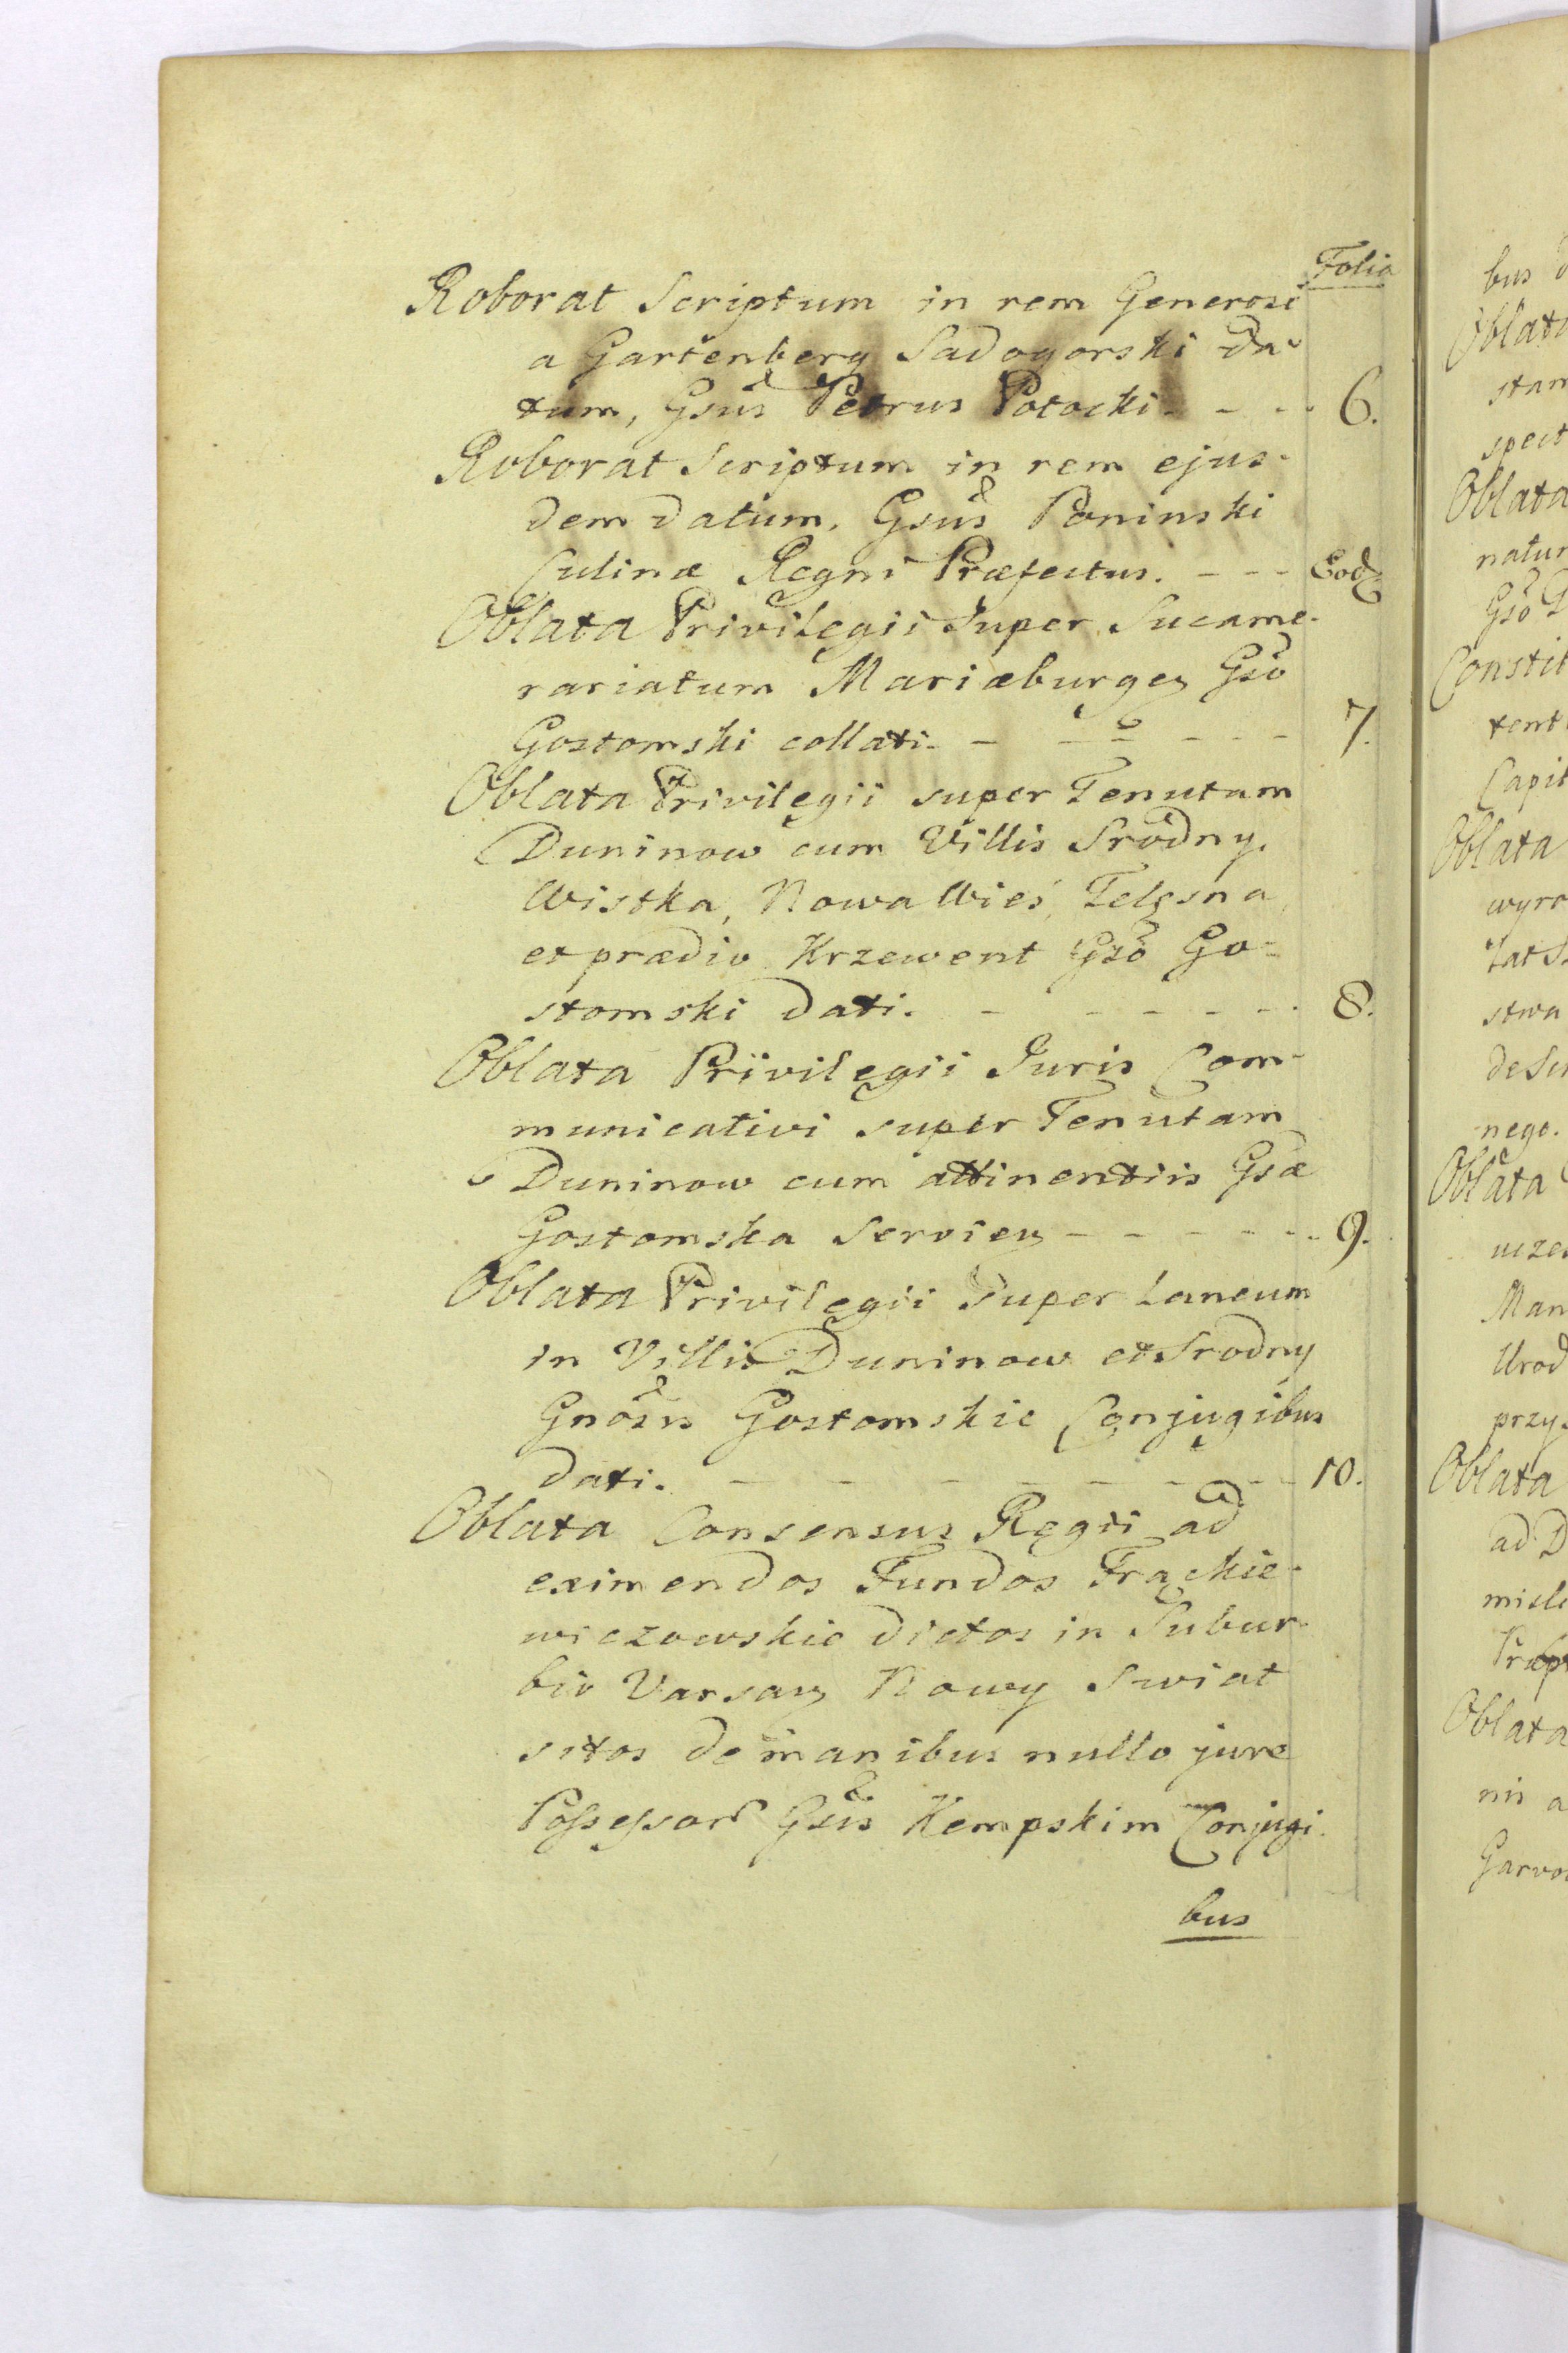 Folia
Roborat Scriptum in rem Generosi
a Gartenberg Sadogorski da-
tum, Gsus Petrus Potocki. - - - 6.
Roborat Scriptum in rem ejus-
dem datum. Gsus Poninski
Culinæ Regni Præfectus. - - - Eod
Oblata Privilegii Super Sucame-
rariatum Mariæburgen Gso
Gostomski collati. - - - - - - 7.
Oblata Privilegii super Tenutam
Duninow cum Villis Srodny,
Wistka, Nowa Wieś, Telęsna,
et prædio Krzewent Gso Go-
stomski dati. - - - - - - 8.
Oblata Privilegii Juris Com-
municativi super Tenutam
Duninow cum attinentiis Gsæ
Gostomska Servien - - - - - - 9.
Oblata Privilegii Super Laneum
in Villis Duninow et Srodny
Gnosis Gostomskie Conjugibus
dati. - - - - - - - - 10.
Oblata Consensus Regii ad
eximendos Fundos Frąckie-
wiczowskie dictos in Subur-
bio Varsav Nowy Swiat
sitos de manibus nullo jure
Possessor Gsis Kempskim Conjugi-
bus
bus
Oblata
stam
spect
Oblata
natur
Gso
Constit
tent
Capit
Oblata
wyro
tat
stwa
de
nego.
Oblata
uczes
Man
Urod
przy
Oblata
ad D
Oblata
nis a
Garvo